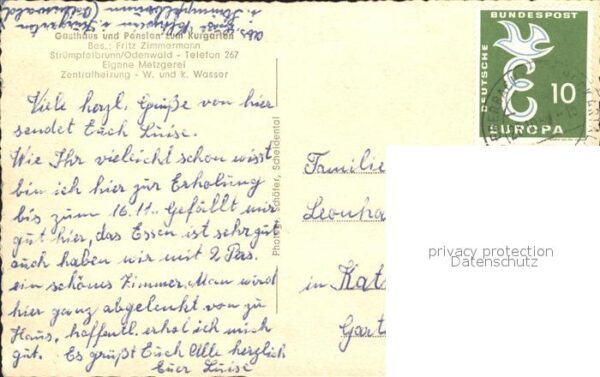 Gasthaus und Pension zum Kurgarten
Bes.: Fritz Zimmermann
Strümpfelbrunn/Odenwald - Telefon 267
Eigene Metzgerei
Zentralheizung - W. und k. Wasser
Viele herzl. Grüße von hier
sendet Euch Luise.
Wie Ihr vielleicht schon wisst
bin ich hier zur Erholung
bis zum 16.11. Gefällt mir
gut hier, das Essen ist sehr gut
auch haben wir mit 2 Pers.
ein schönes Zimmer. Man wird
hier ganz abgelenkt von zu
Haus, hoffentl. erhol ich mich
gut. Es grüßt Euch Alle herzlich
Euer Luise
Photogr. Schäfer, Scheidental
DEUTSCHE
BUNDESPOST
E 10
EUROPA
Familie
Leonha
in Kat
Gart
privacy protection
Datenschutz